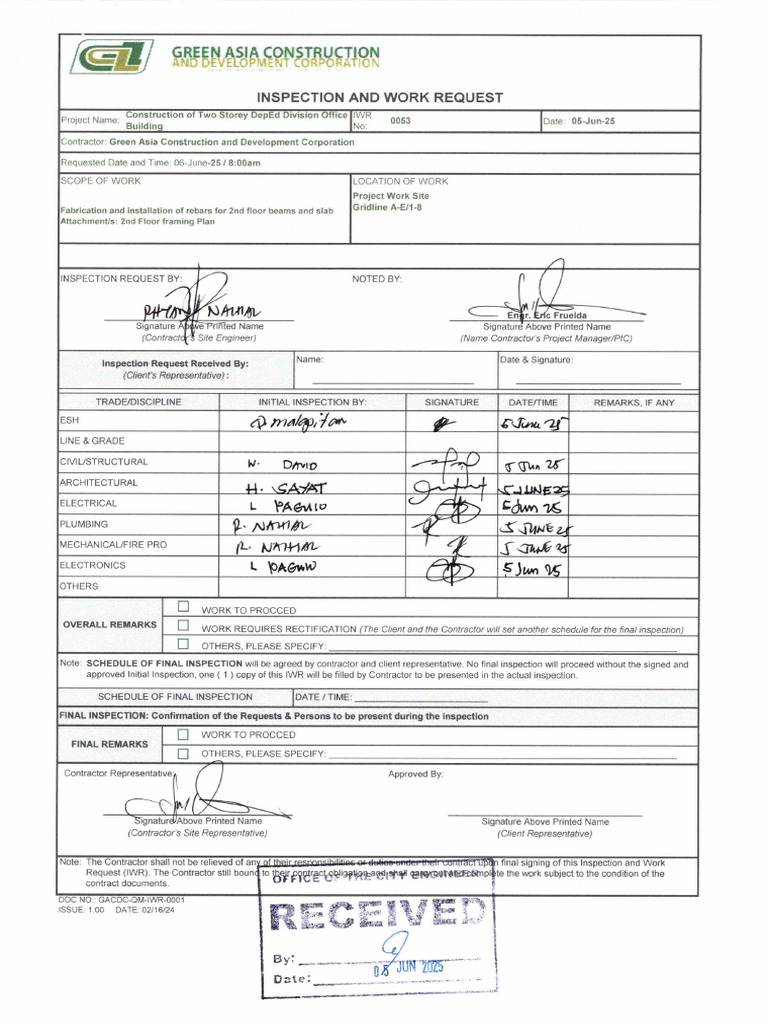 GREEN ASIA CONSTRUCTION
AND DEVELOPMENT CORPORATION
INSPECTION AND WORK REQUEST
Project Name: Construction of Two Storey DepEd Division Office Building
IWR No: 0053
Date: 05-Jun-25
Contractor: Green Asia Construction and Development Corporation
Requested Date and Time: 06-June-25 / 8:00am
SCOPE OF WORK
Fabrication and installation of rebars for 2nd floor beams and slab
Attachment/s: 2nd Floor framing Plan
LOCATION OF WORK
Project Work Site
Gridline A-E/1-8
INSPECTION REQUEST BY:
NAHIAL
Signature Above Printed Name
(Contractor's Site Engineer)
NOTED BY:
Engr. Eric Fruelda
Signature Above Printed Name
(Name Contractor's Project Manager/PIC)
Inspection Request Received By:
(Client's Representative) :
Name:
Date & Signature:
TRADE/DISCIPLINE INITIAL INSPECTION BY: SIGNATURE DATE/TIME REMARKS, IF ANY
ESH malapitan 5 June 25
LINE & GRADE
CIVIL/STRUCTURAL W. DAVID 5 Jun 25
ARCHITECTURAL H. SAYAT 5 JUNE 25
ELECTRICAL L PAGUIO 5 Jun 25
PLUMBING R. NAHIAL 5 JUNE 25
MECHANICAL/FIRE PRO R. NAHIAL 5 JUNE 25
ELECTRONICS L PAGUIO 5 Jun 25
OTHERS
OVERALL REMARKS
WORK TO PROCCED
WORK REQUIRES RECTIFICATION (The Client and the Contractor will set another schedule for the final inspection)
OTHERS, PLEASE SPECIFY:
Note: SCHEDULE OF FINAL INSPECTION will be agreed by contractor and client representative. No final inspection will proceed without the signed and
approved Initial Inspection, one ( 1 ) copy of this IWR will be filled by Contractor to be presented in the actual inspection.
SCHEDULE OF FINAL INSPECTION DATE / TIME:
FINAL INSPECTION: Confirmation of the Requests & Persons to be present during the inspection
FINAL REMARKS
WORK TO PROCCED
OTHERS, PLEASE SPECIFY:
Contractor Representative:
Signature Above Printed Name
(Contractor's Site Representative)
Approved By:
Signature Above Printed Name
(Client Representative)
Note: The Contractor shall not be relieved of any of their responsibilities or duties under their contract upon final signing of this Inspection and Work
Request (IWR). The Contractor still bound to their contract obligation and shall carry out and complete the work subject to the condition of the
contract documents.
DOC NO.: GACDC-QM-IWR-0001
ISSUE: 1.00 DATE: 02/16/24
OFFICE OF THE CITY ENGINEER
RECEIVED
By:
Date: 05 JUN 2025